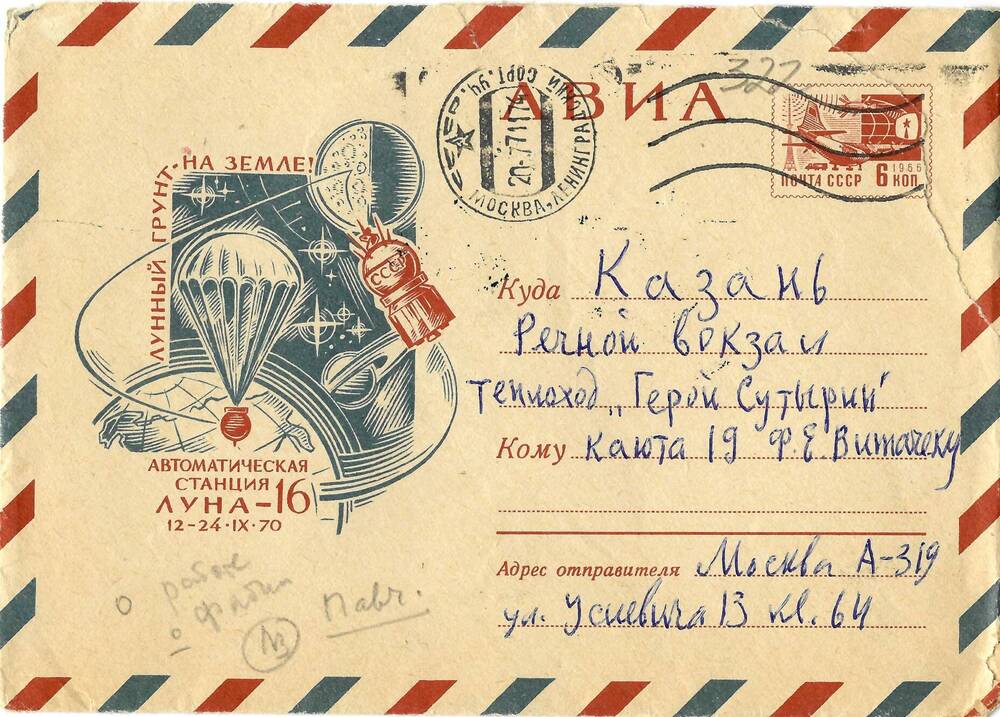 АВИА
322
МОСКВА, ЛЕНИНГРАДСКИЙ СОРТ. 94.
20-7711174
1966
ПОЧТА СССР 6 КОП
ЛУННЫЙ ГРУНТ - НА ЗЕМЛЕ!
СССР
АВТОМАТИЧЕСКАЯ
СТАНЦИЯ
ЛУНА-16
12-24·IX·70
Куда Казань
Речной вокзал
теплоход „Герой Сутырин"
Кому каюта 19 Ф.Е. Витачеку
Адрес отправителя Москва А-319
ул. Усиевича 13 кв. 64
о работе
Павч.